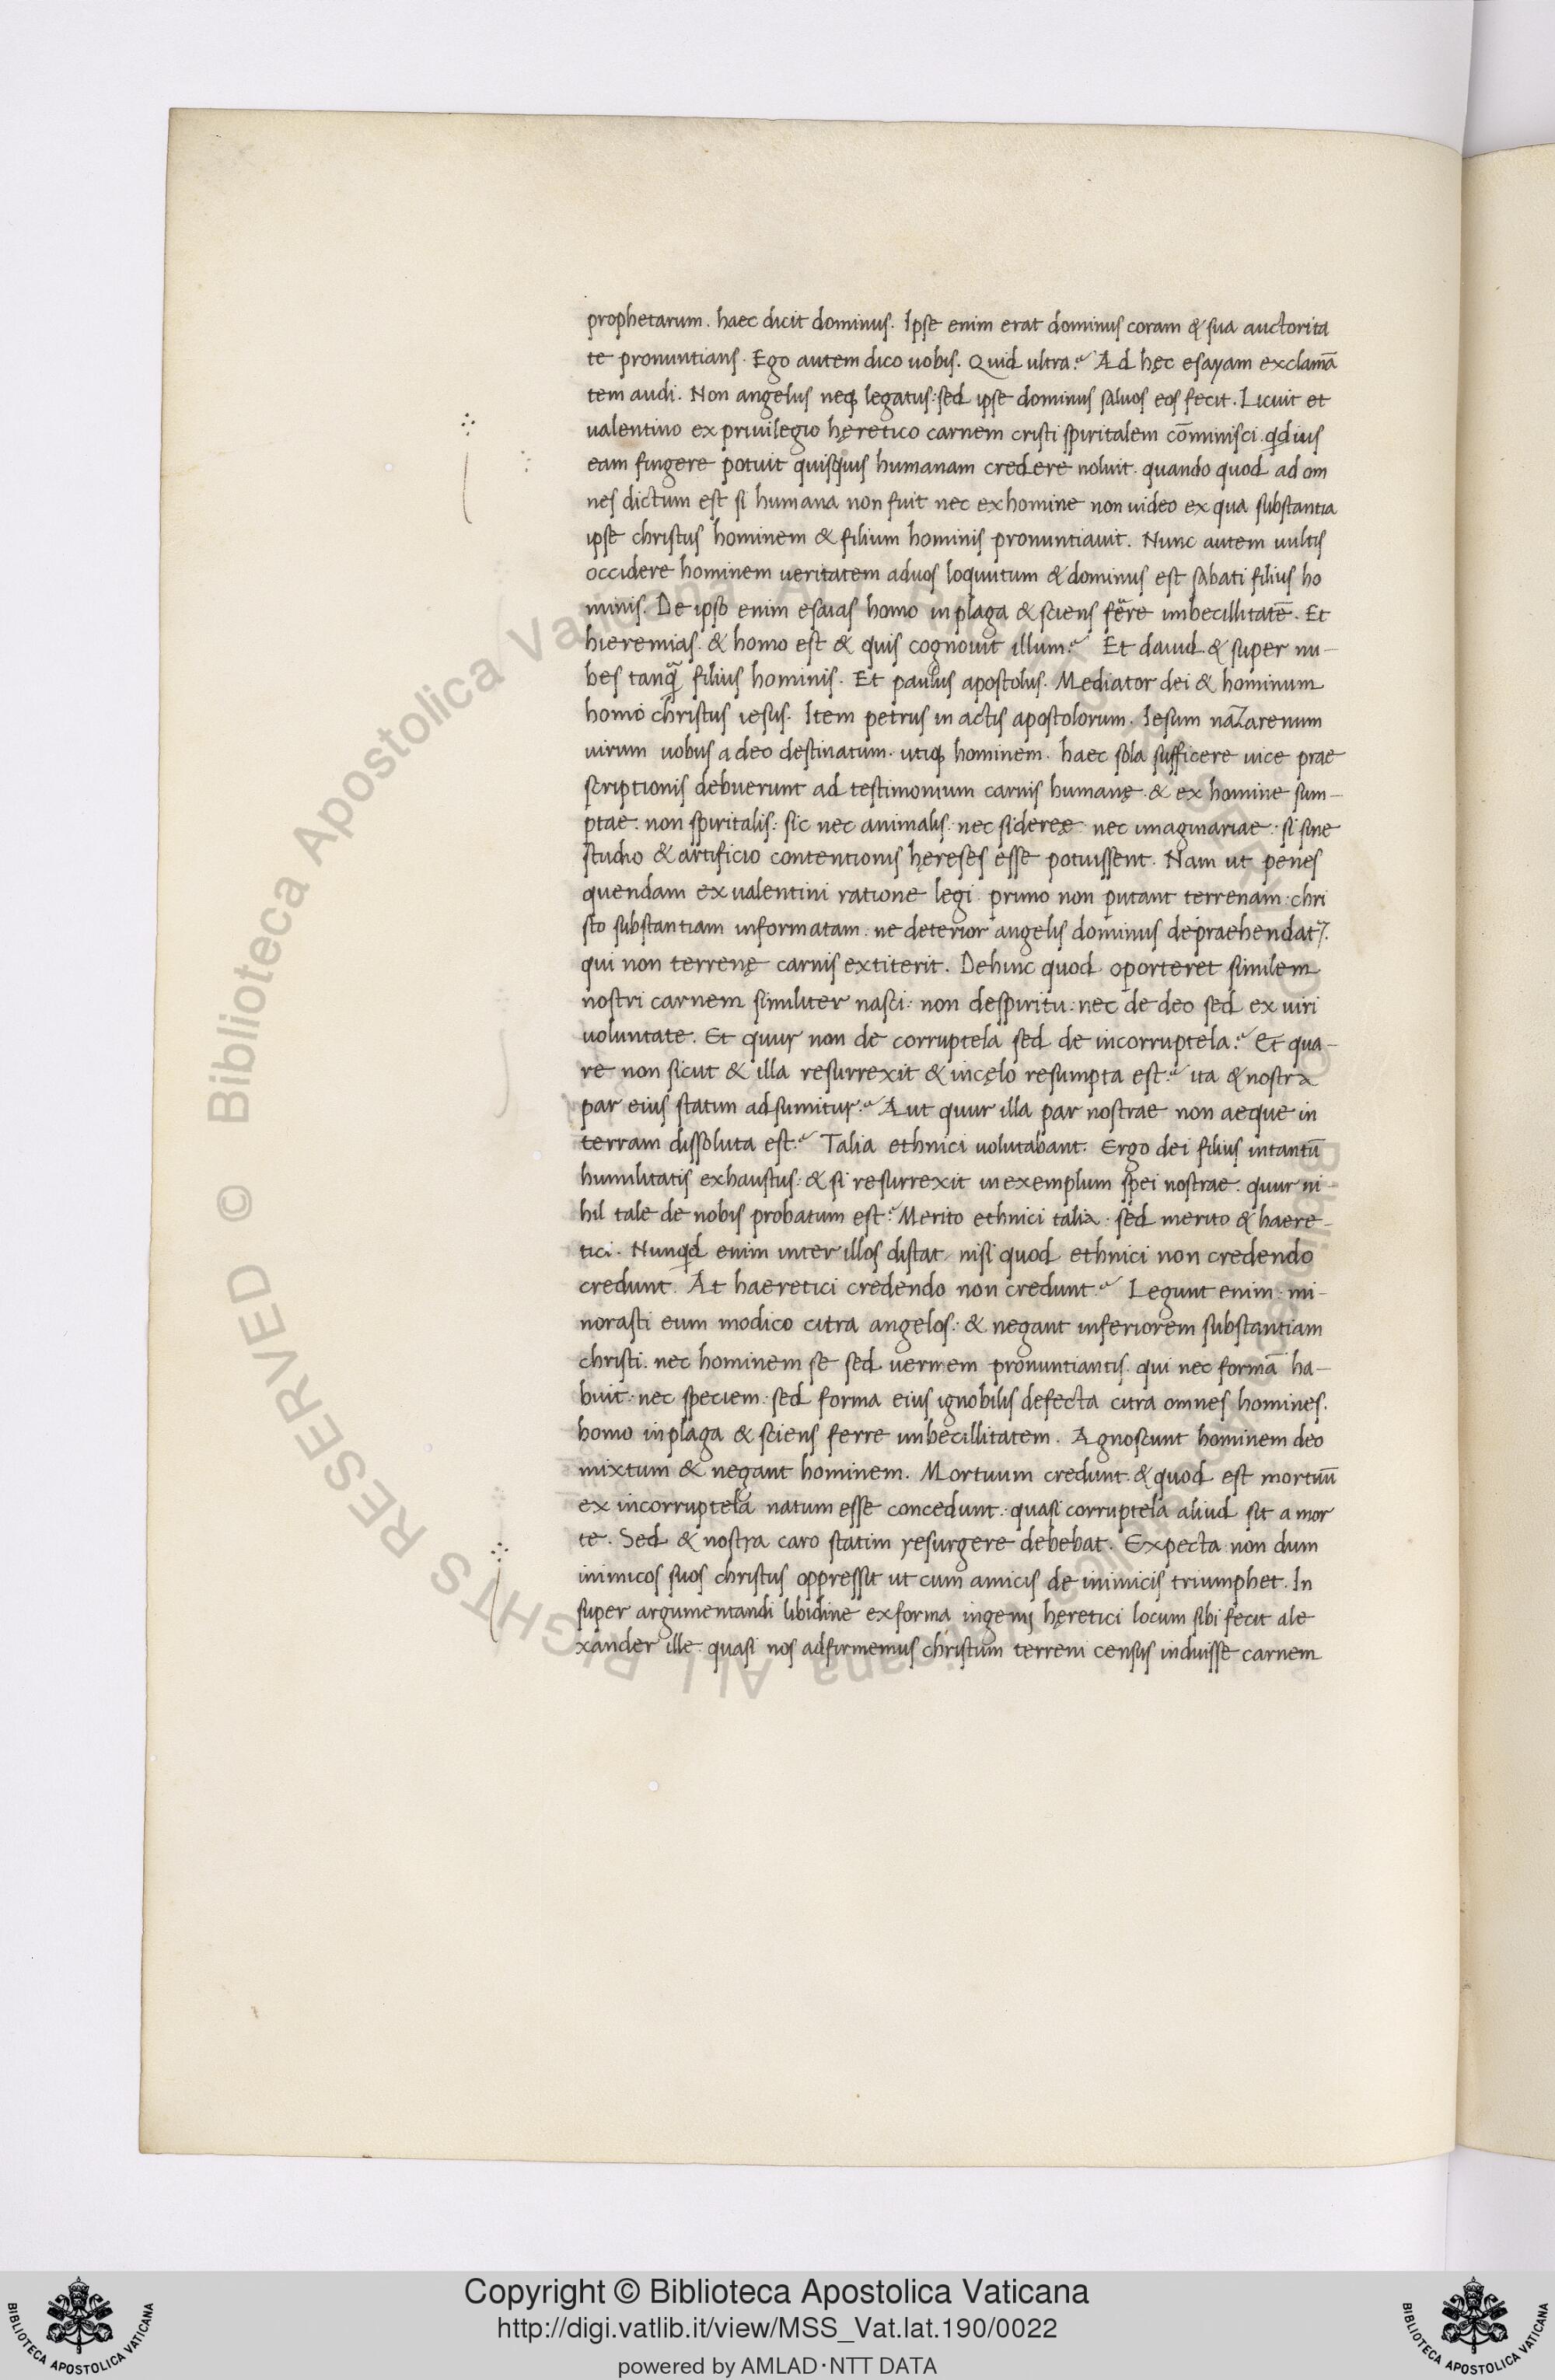 prophetarum. haec dicit dominus. Ipse enim erat dominus coram & sua auctorita
te pronuntians. Ego autem dico uobis. Quid ultra? Ad hęc esayam exclamā
tem audi. Non angelus neq; legatus: sed ipse dominus saluos eos fecit. Licuit et
ualentino ex priuilegio hęretico carnem cristi spiritalem cōminisci. qdius
eam fingere potuit quisquis humanam credere noluit. quando quod ad om
nes dictum est si humana non fuit nec ex homine non uideo ex qua substantia
ipse christus hominem & filium hominis pronuntiauit. Nunc autem uultis
occidere hominem ueritatem aduos loquutum & dominus est sabati filius ho
minis. De ipso enim esaias homo inplaga & sciens ferre imbecillitatē. Et
hieremias. & homo est & quis cognouit illum? Et dauid & super nu-
bes tanq̃ filius hominis. Et paulus apostolus. Mediator dei & hominum
homo christus iesus. Item petrus in actis apostolorum. Iesum naZarenum
uirum uobus adeo destinatum. utiq; hominem. haec sola sufficere uice prae
scriptionis debuerunt ad testimonium carnis humanę. & ex homine sum-
ptae. non spiritalis: sic nec animalis. nec sidereę. nec imaginariae: si sine
studio & artificio contentionis hęreses esse potuissent. Nam ut penes
quendam ex ualentini ratione legi. primo non putant terrenam. chri
sto substantiam informatam. ne deterior angelis dominus depraehendat⁊.
qui non terrenę carnis extiterit. Dehinc quod oporteret similem
nostri carnem similiter nasci: non despiritu: nec de deo sed ex uiri
uoluntate. Et quur non de corruptela sed de incorruptela? Et qua-
re non sicut & illa resurrexit & incęlo resumpta est? ita & nostra
par eius statim adsumitur? Aut quur illa par nostrae non aeque in
terram dissoluta est? Talia ethnici uolutabant. Ergo dei filius intantū
humilitatis exhaustus: & si resurrexit inexemplum spei nostrae. quur ni-
hil tale de nobis probatum est? Merito ethnici talia. sed merito & haere-
tici. Nunqd enim inter illos distat nisi quod ethnici non credendo
credunt. At haeretici credendo non credunt? Legunt enim. mi-
norasti eum modico citra angelos: & negant inferiorem substantiam
christi. nec hominem se sed uermem pronuntiantis. qui nec formā ha-
buit. nec speciem. sed forma eius ignobilis defecta citra omnes homines.
homo inplaga & sciens ferre imbecillitatem. Agnoscunt hominem deo
mixtum & negant hominem. Mortuum credunt. & quod est mortuū
ex incorruptela natum esse concedunt: quasi corruptela aliud sit a mor
te. Sed & nostra caro statim resurgere debebat. Expecta. non dum
inimicos suos christus oppressit ut cum amicis de inimicis triumphet. In
super argumentandi libidine exforma ingenij hęretici locum sibi fecit ale
xander ille. quasi nos adfirmemus christum terreni census induisse carnem
© Biblioteca Apostolica Vaticana ALL RIGHTS RESERVED © Biblioteca Apostolica Vaticana ALL RIGHTS RESERVED
Copyright © Biblioteca Apostolica Vaticana
http://digi.vatlib.it/view/MSS_Vat.lat.190/0022
powered by AMLAD·NTT DATA
BIBLIOTECA APOSTOLICA VATICANA
BIBLIOTECA APOSTOLICA VATICANA